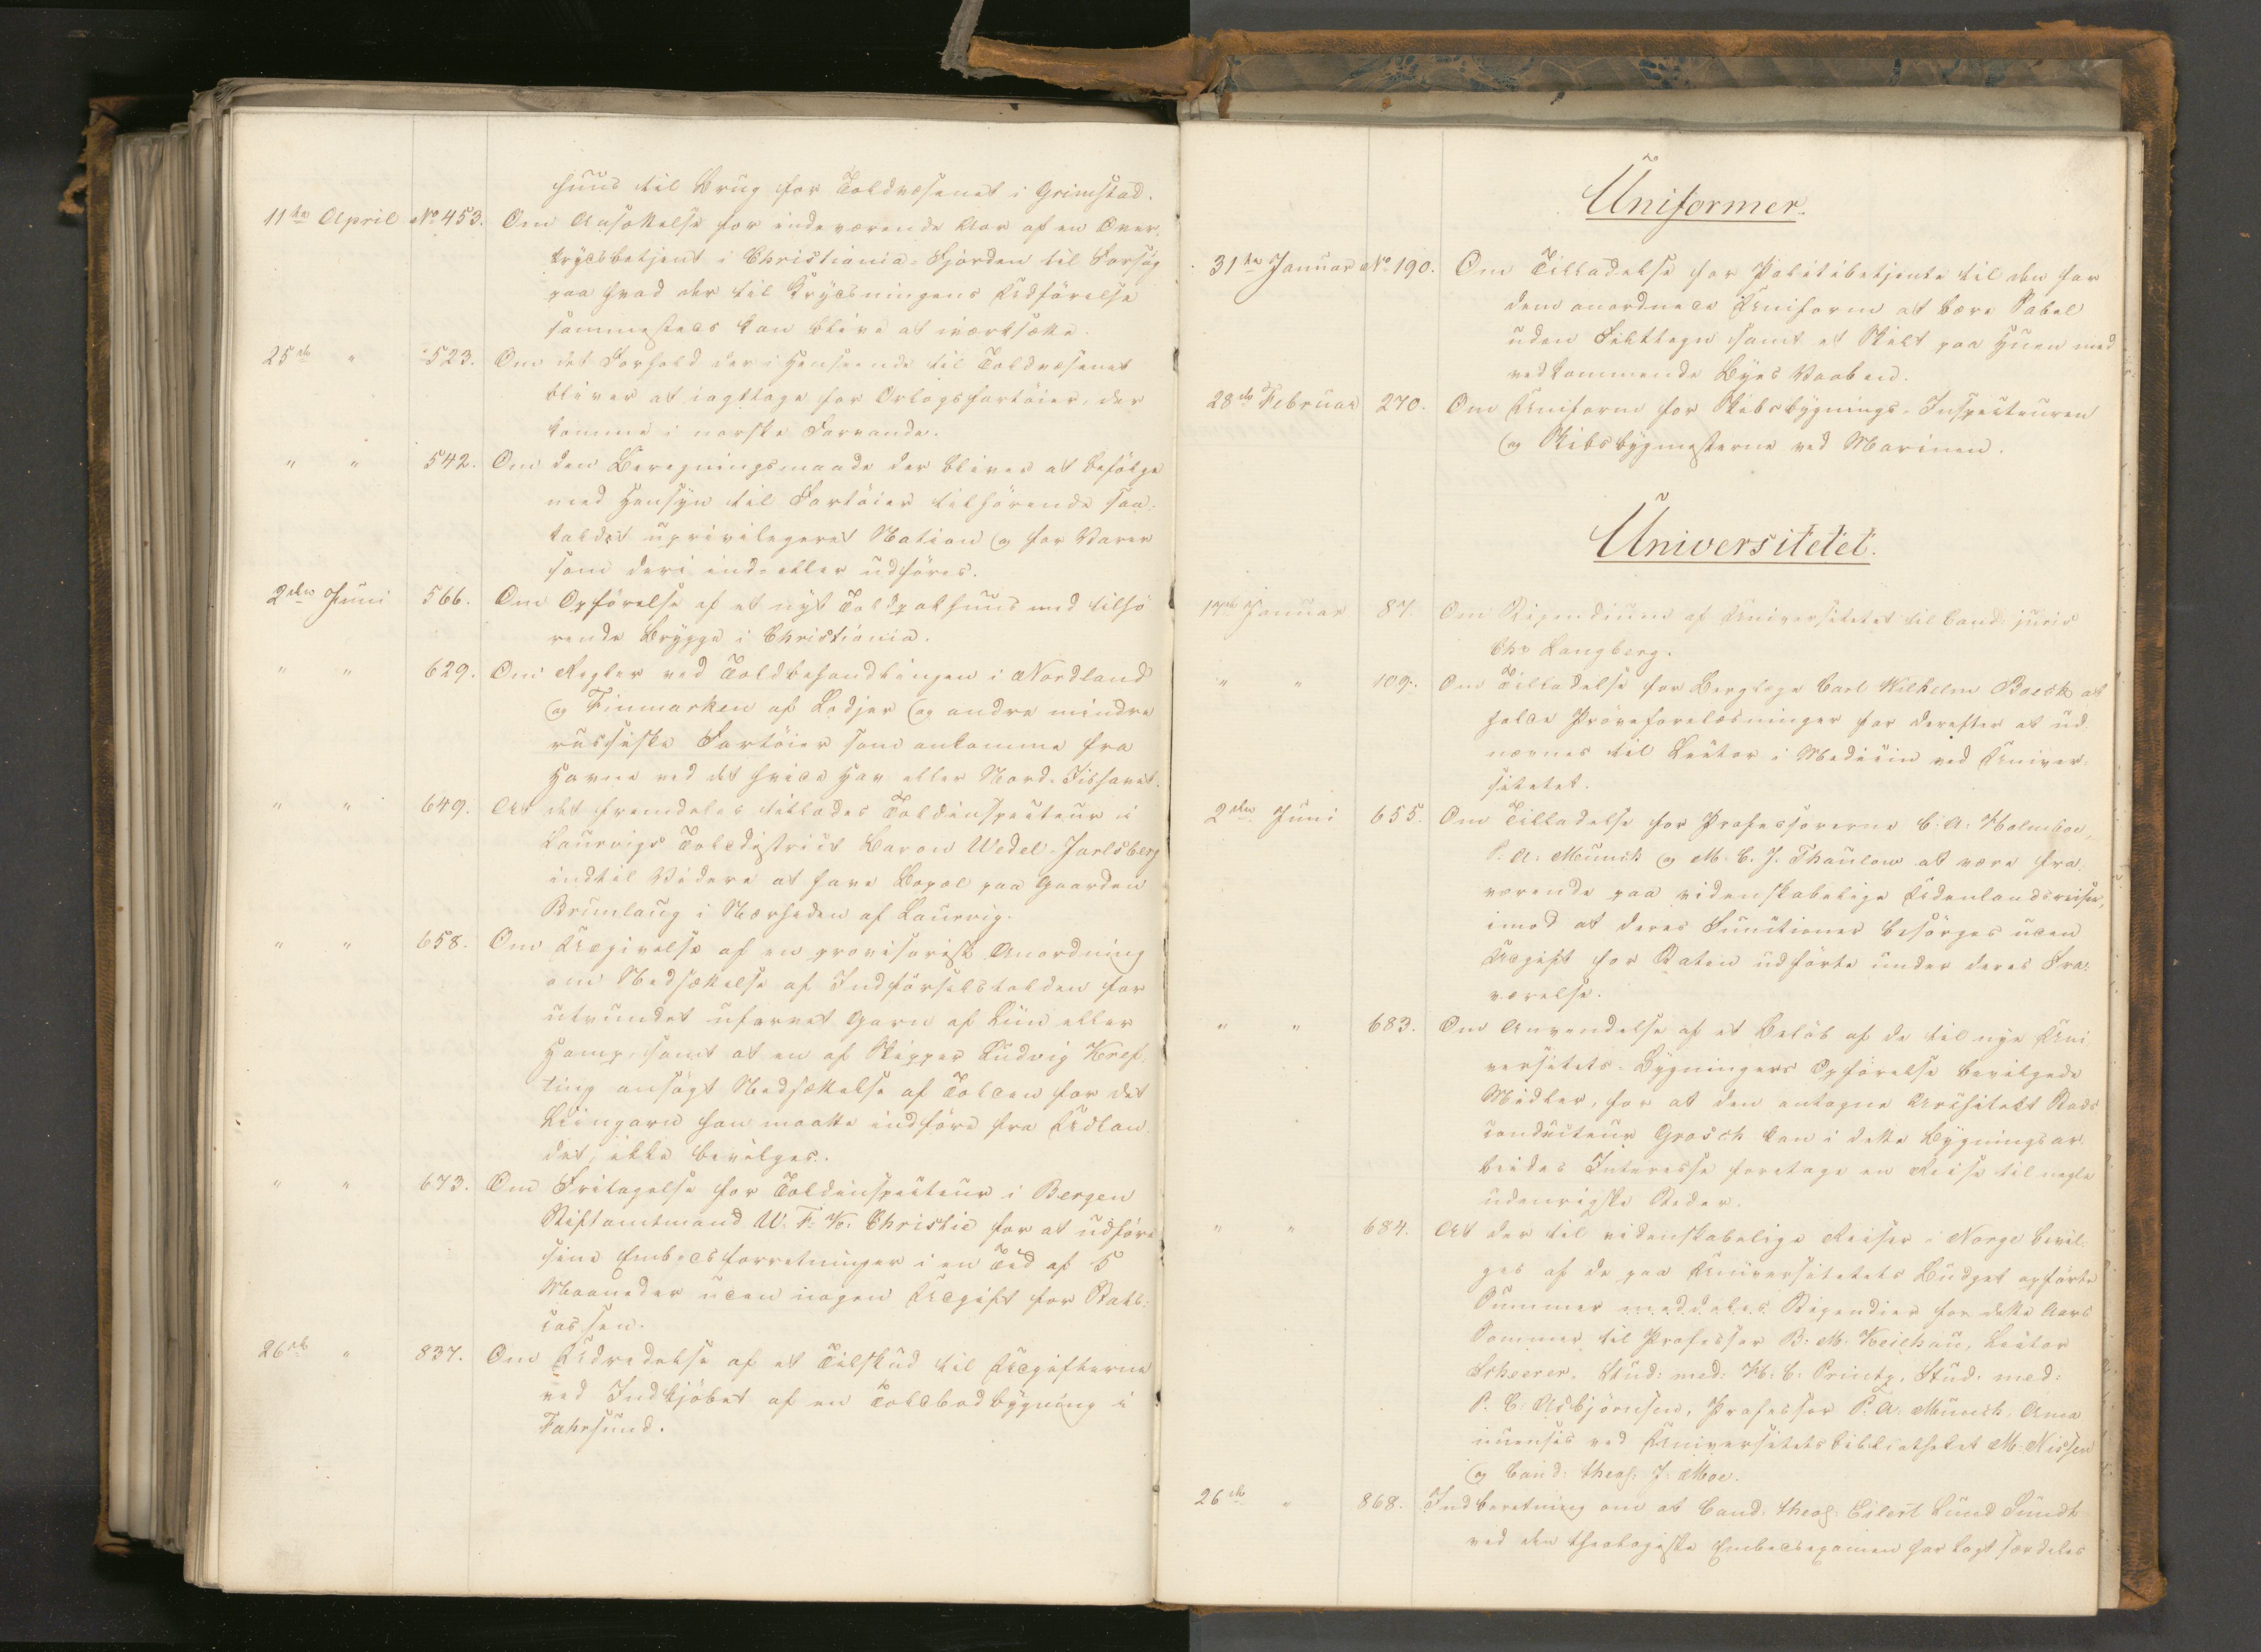 huus til Brug for Toldvæsenet i Grimstad.
11te April No 453. Om Ansættelse for indeværende Aar af en Over-
krydsbetjent i Christiania-Fjorden til Forsøg
paa hvad der til Krydsningens Udförelse
sammesteds kan blive at iværksætte.
25de " 523. Om det Forhold der i Henseende til Toldvæsenet
bliver at iagttage for Orlogsfartöier, der
komme i norske Farvande.
" " 542. Om den Beregningsmaade der bliver at befölge
med Hensyn til Fartöier tilhörende saa-
kaldet uprivilegeret Nation og for Varer
som deri ind- eller udföres.
2den Juni 566. Om Opförelse af et nyt Toldpakhuus med tilhö-
rende Brygge i Christiania.
" " 629. Om Regler ved Toldbehandlingen i Nordland
og Finmarken af Lodjer og andre mindre
russiske Fartöier som ankomme fra
Havne ved det hvide Hav eller Nord-Iishavet.
" " 649. At det fremdeles tillades Toldinspecteur i
Laurvigs Tolddistrict Baron Wedel-Jarlsberg
indtil Videre at have Bopæl paa Gaarden
Brunlaug i Nærheden af Laurvig.
" " 658. Om Udgivelse af en provisorisk Anordning
om Nedsættelse af Indförselstolden for
utvundet ufarvet Garn af Liin eller
Hamp, samt at en af Skipper Ludvig Kref-
ting ansögt Nedsættelse af Tolden for det
Liingarn han maatte indföre fra Udlan-
det, ikke bevilges.
" " 673. Om Fritagelse for Toldinspecteur i Bergen
Stiftamtmand W. F. K. Christie for at udföre
sine Embedsforretninger i en Tid af 5
Maaneder uden nogen Udgift for Stats-
cassen.
26de " 837. Om Udredelse af et Tilskud til Udgifterne
ved Indkjöbet af en Toldbodbygning i
Fahrsund.
Uniformer.
31te Januar No 190. Om Tilladelse for Politibetjente til den for
dem anordnede Uniform at bære Sabel
uden Felttegn samt et Skilt paa Huen med
vedkommende Byes Vaaben.
28de Februar 270. Om Uniform for Skibsbygnings-Inspecteuren
og Skibsbygmesterne ved Marinen.
Universitetet.
17de Januar 87. Om Stipendium af Universitetet til Cand: juris
Chr Langberg.
" " 109. Om Tilladelse for Berglæge Carl Wilhelm Boeck at
holde Pröveforelæsninger for derefter at ud-
nævnes til Lector i Medicin ved Univer-
sitetet.
2den Juni 655. Om Tilladelse for Professorerne C. A. Holmboe,
P. A. Munch og M. C. J. Thaulow at være fra-
værende paa videnskabelige Udenlandsreiser,
imod at deres Functioner besörges uden
Udgift for Staten udförte under deres Fra-
værelse.
" " 683. Om Anvendelse af et Belöb af de til nye Uni-
versitets-Bygningers Opförelse bevilgede
Midler, for at den antagne Architekt Stads-
conducteur Grosch kan i dette Bygningsar-
beides Interesse foretage en Reise til nogle
udenrigske Steder.
" " 684. At der til videnskabelige Reiser i Norge bevil-
ges af de paa Universitetets Budget opförte
Summer meddeles Stipendier for dette Aars
Sommer til Professor B. M. Keilhau, Lector
Scheerer, Stud: med: H. C. Printz, Stud. med:
P. C. Asbjörnsen, Professor P. A. Munch, Ama-
nuensis ved Universitetsbibliotheket M. Nissen
og Cand: theol: J. Moe.
26de " 868. Indberetning om at Cand. theol: Eilert Lund Sundt
ved den theologiske Embedsexamen har lagt særdeles